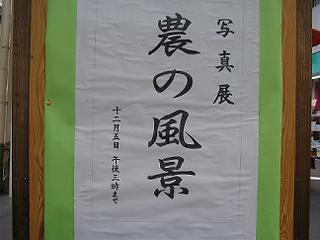 写真展
農の風景
十二月五日 午後三時まで